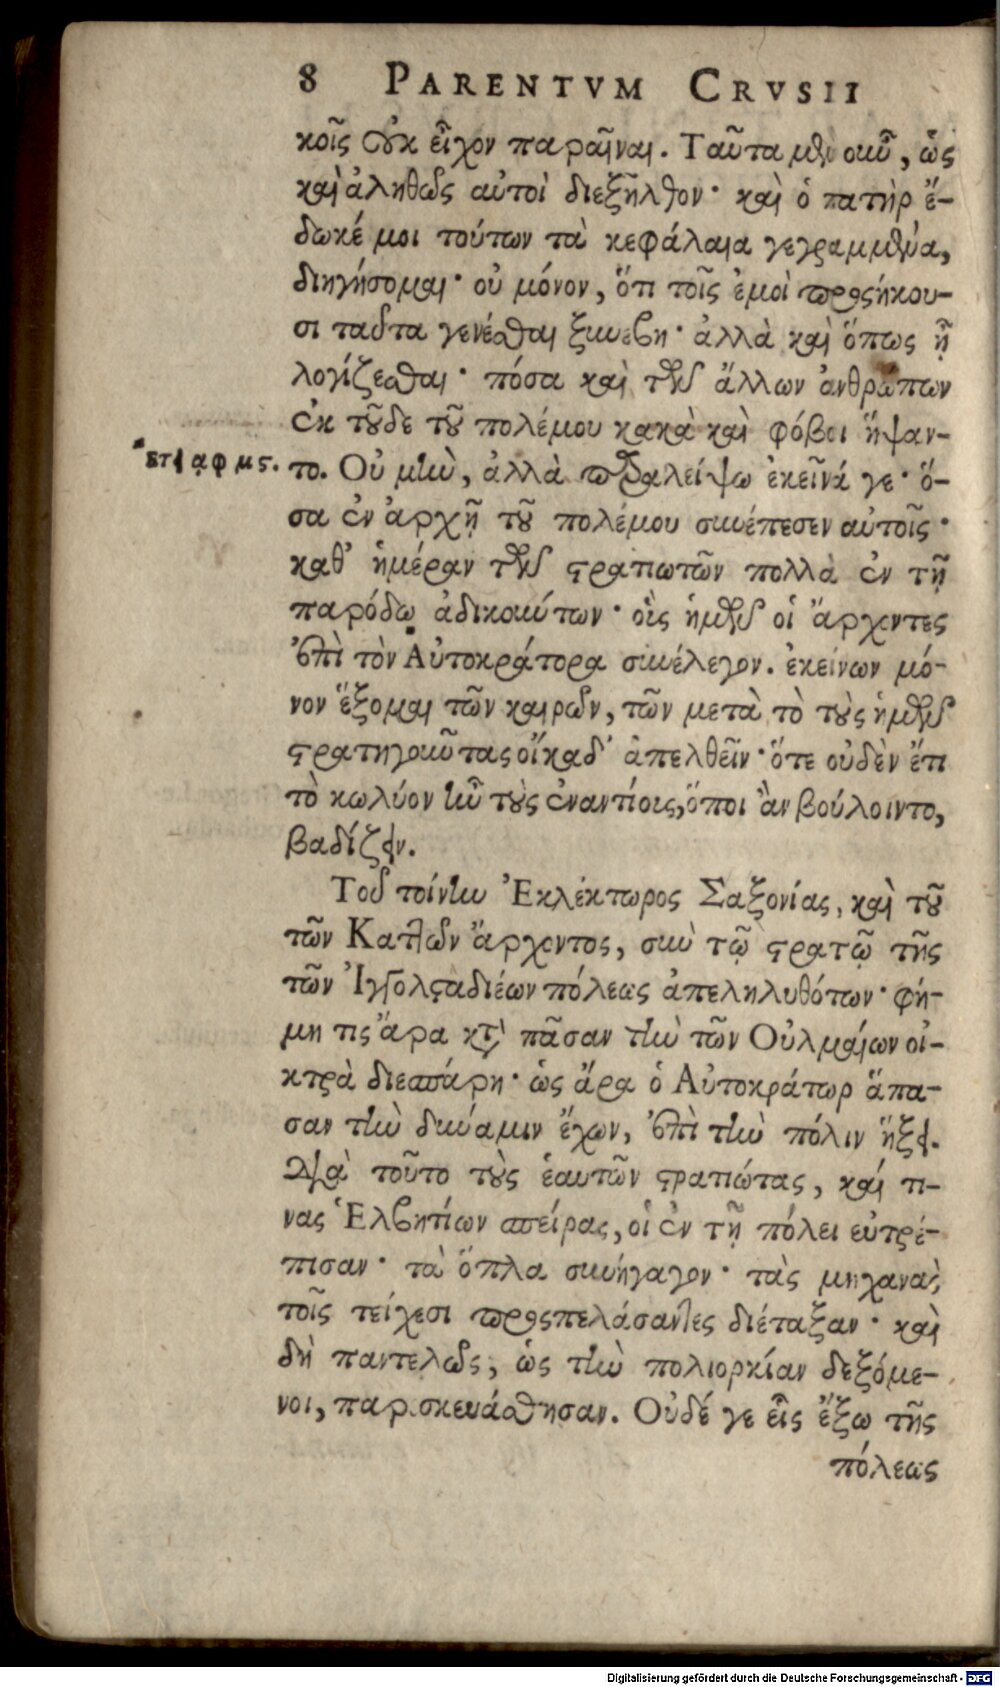 8 PARENTVM CRVSII
κοῖς οὐκ εἶχον παραῖναι. Ταῦτα μὲν οὖν, ὡς
καὶ ἀληθῶς αὐτοὶ διεξῆλθον· καὶ ὁ πατὴρ ἔ-
δωκέ μοι τούτων τὰ κεφάλαια γεγραμμένα,
διηγήσομαι· οὐ μόνον, ὅτι τοῖς ἐμοὶ προςήκου-
σι ταῦτα γενέσθαι ξυνέβη· ἀλλὰ καὶ ὅπως ᾖ
λογίζεσθαι· πόσα καὶ τῶν ἄλλων ἀνθρώπων
ἐκ τοῦδε τοῦ πολέμου κακὰ καὶ φόβοι ἥψαν-
*ἔτι αφμς.
το. Οὐ μὴν, ἀλλὰ παραλείψω ἐκεῖνά γε· ὅ-
σα ἐν ἀρχῇ τοῦ πολέμου συνέπεσεν αὐτοῖς·
καθ’ ἡμέραν τῶν στρατιωτῶν πολλὰ ἐν τῇ
παρόδῳ ἀδικούντων· οἷς ἡμῶν οἱ ἄρχοντες
ἐπὶ τὸν Αὐτοκράτορα συνέλεγον. ἐκείνων μό-
νον ἕξομαι τῶν καιρῶν, τῶν μετὰ τὸ τοὺς ἡμῶν
στρατηγοῦντας οἴκαδ’ ἀπελθεῖν· ὅτε οὐδὲν ἔτι
τὸ κωλύον ἦν τοὺς ἐναντίοις, ὅποι ἂν βούλοιντο,
βαδίζειν.
Τοῦ τοίνυν Ἐκλέκτωρος Σαξονίας, καὶ τοῦ
τῶν Κατθῶν ἄρχοντος, σὺν τῷ στρατῷ τῆς
τῶν Ἰγγολσταδιέων πόλεως ἀπεληλυθότων· φή-
μη τις ἄρα κατὰ πᾶσαν τὴν τῶν Οὐλμαίων οἰ-
κτρὰ διεσπάρη· ὡς ἄρα ὁ Αὐτοκράτωρ ἅπα-
σαν τὴν δύναμιν ἔχων, ἐπὶ τὴν πόλιν ἥξει.
Διὰ τοῦτο τοὺς ἑαυτῶν στρατιώτας, καί τι-
νας Ἑλβητίων σπείρας, οἱ ἐν τῇ πόλει εὐτρέ-
πισαν· τὰ ὅπλα συνήγαγον· τὰς μηχανὰς
τοῖς τείχεσι προςπελάσαντες διέταξαν· καὶ
δὴ παντελῶς, ὡς τὴν πολιορκίαν δεξόμε-
νοι, παρεσκευάσθησαν. Οὐδέ γε εἷς ἔξω τῆς
πόλεως
Digitalisierung gefördert durch die Deutsche Forschungsgemeinschaft - DFG